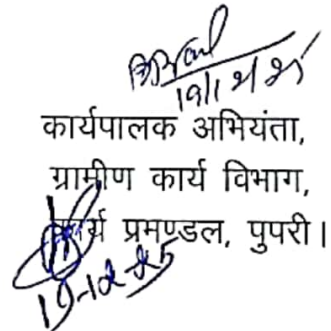 19/12/25
कार्यपालक अभियंता,
ग्रामीण कार्य विभाग,
कार्य प्रमण्डल, पुपरी।
19-12-25